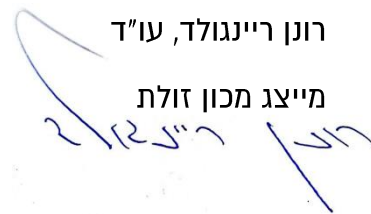 רונן ריינגולד, עו"ד
מייצג מכון זולת
רונן ריינגולד